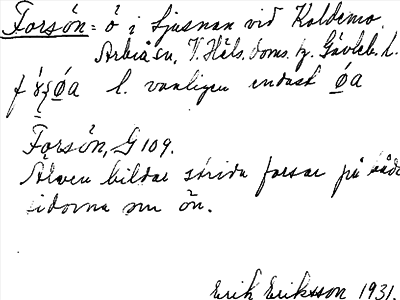 Forsön = ö i Ljusnan vid Koldemo
Arbrå sn, V. Häls. doms. tg. Gävleb. l.
l. vanligen endast øa
Forsön, G 109.
Älven bildar strida forsar på båda
sidorna om ön.
Erik Eriksson 1931.